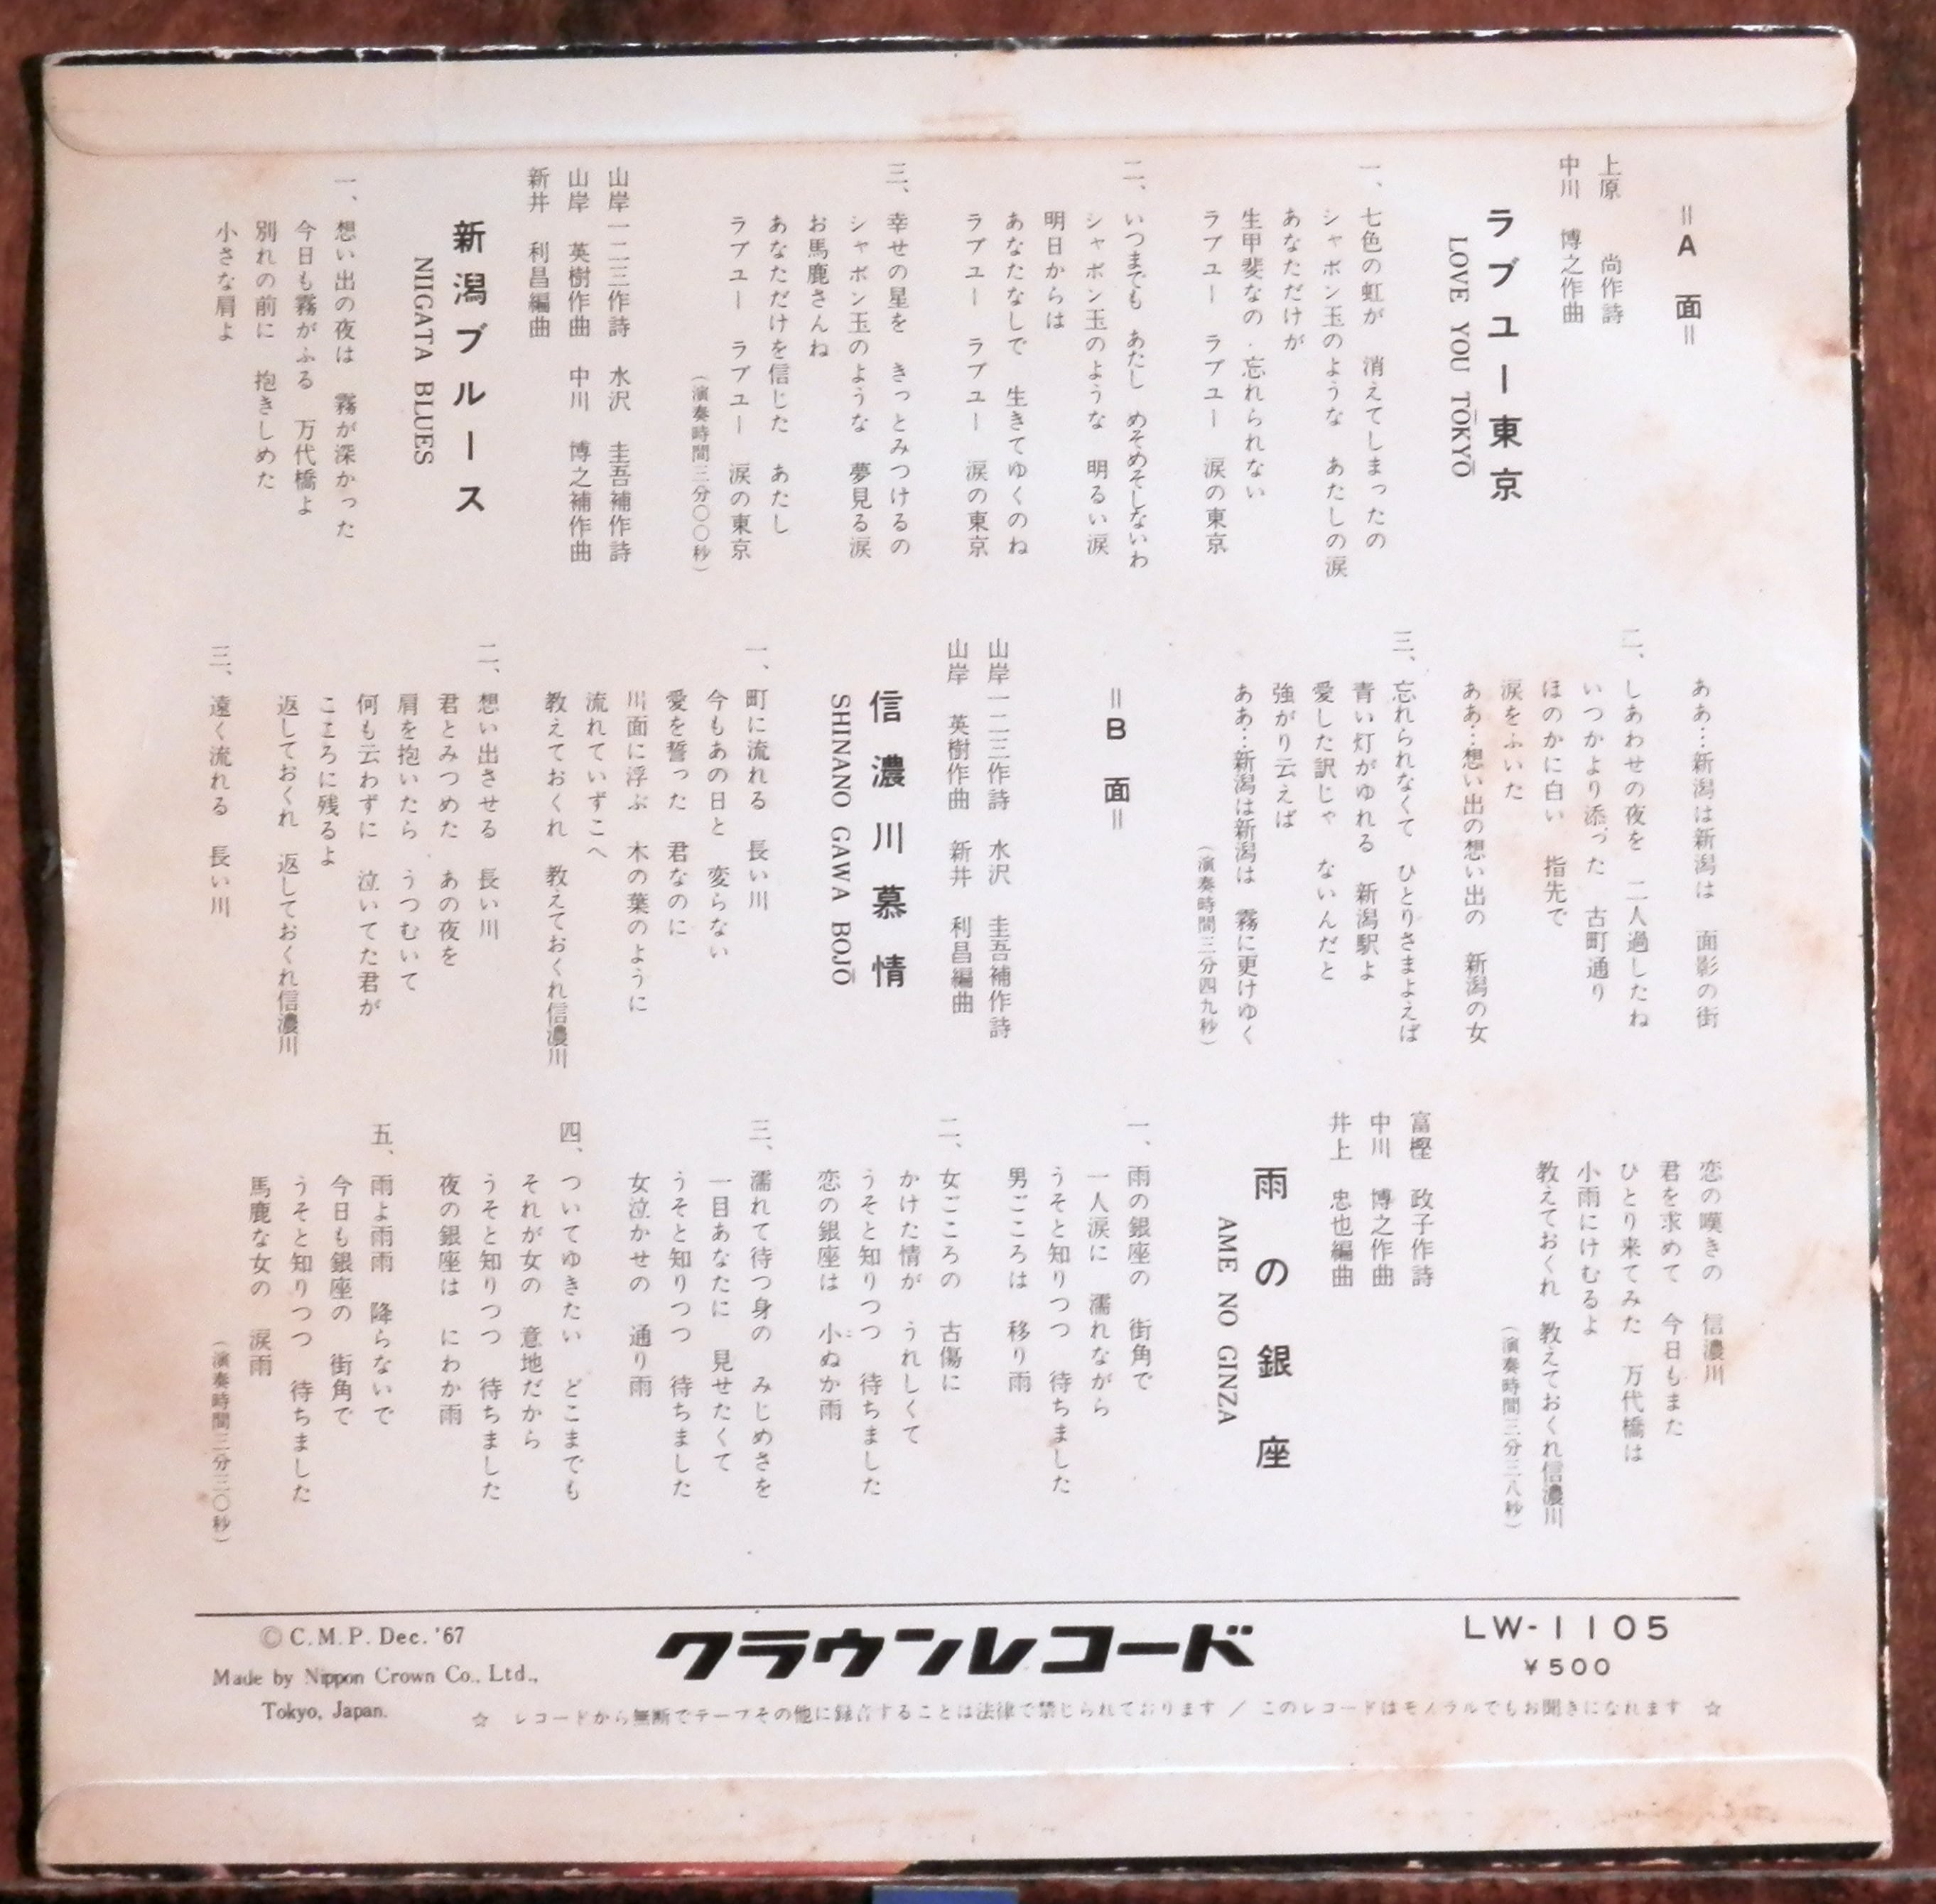 ＝A 面＝
上原 尚作詩
中川 博之作曲
ラブユー東京
LOVE YOU TŌKYŌ
一、七色の虹が 消えてしまったの
シャボン玉のような あたしの涙
あなただけが
生甲斐なの 忘れられない
ラブユー ラブユー 涙の東京
二、いつまでも あたし めそめそしないわ
シャボン玉のような 明るい涙
明日からは
あなたなしで 生きてゆくのね
ラブユー ラブユー 涙の東京
三、幸せの星を きっとみつけるの
シャボン玉のような 夢見る涙
お馬鹿さんね
あなただけを信じた あたし
ラブユー ラブユー 涙の東京
（演奏時間三分〇〇秒）
山岸一二三作詩 水沢 圭吾補作詩
山岸 英樹作曲 中川 博之補作曲
新井 利昌編曲
新潟ブルース
NIIGATA BLUES
一、想い出の夜は 霧が深かった
今日も霧がふる 万代橋よ
別れの前に 抱きしめた
小さな肩よ
ああ…新潟は新潟は 面影の街
二、しあわせの夜を 二人過したね
いつかより添った 古町通り
ほのかに白い 指先で
涙をふいた
ああ…想い出の想い出の 新潟の女
三、忘れられなくて ひとりさまよえば
青い灯がゆれる 新潟駅よ
愛した訳じゃ ないんだと
強がり云えば
ああ…新潟は新潟は 霧に更けゆく
（演奏時間三分四九秒）
＝B 面＝
山岸一二三作詩 水沢 圭吾補作詩
山岸 英樹作曲 新井 利昌編曲
信濃川慕情
SHINANO GAWA BOJŌ
一、町に流れる 長い川
今もあの日と 変らない
愛を誓った 君なのに
川面に浮ぶ 木の葉のように
流れていずこへ
教えておくれ 教えておくれ信濃川
二、想い出させる 長い川
君とみつめた あの夜を
肩を抱いたら うつむいて
何も云わずに 泣いてた君が
こころに残るよ
返しておくれ 返しておくれ信濃川
三、遠く流れる 長い川
恋の嘆きの 信濃川
君を求めて 今日もまた
ひとり来てみた 万代橋は
小雨にけむるよ
教えておくれ 教えておくれ信濃川
（演奏時間三分三八秒）
富樫 政子作詩
中川 博之作曲
井上 忠也編曲
雨の銀座
AME NO GINZA
一、雨の銀座の 街角で
一人涙に 濡れながら
うそと知りつつ 待ちました
男ごころは 移り雨
二、女ごころの 古傷に
かけた情が うれしくて
うそと知りつつ 待ちました
恋の銀座は 小ぬか雨
三、濡れて待つ身の みじめさを
一目あなたに 見せたくて
うそと知りつつ 待ちました
女泣かせの 通り雨
四、ついてゆきたい どこまでも
それが女の 意地だから
うそと知りつつ 待ちました
夜の銀座は にわか雨
五、雨よ雨雨 降らないで
今日も銀座の 街角で
うそと知りつつ 待ちました
馬鹿な女の 涙雨
（演奏時間三分三〇秒）
Ⓒ C.M.P. Dec. '67
Made by Nippon Crown Co., Ltd.,
Tokyo, Japan.
クラウンレコード
LW-1105
¥500
☆ レコードから無断でテープその他に録音することは法律で禁じられております ／ このレコードはモノラルでもお聞きになれます ☆